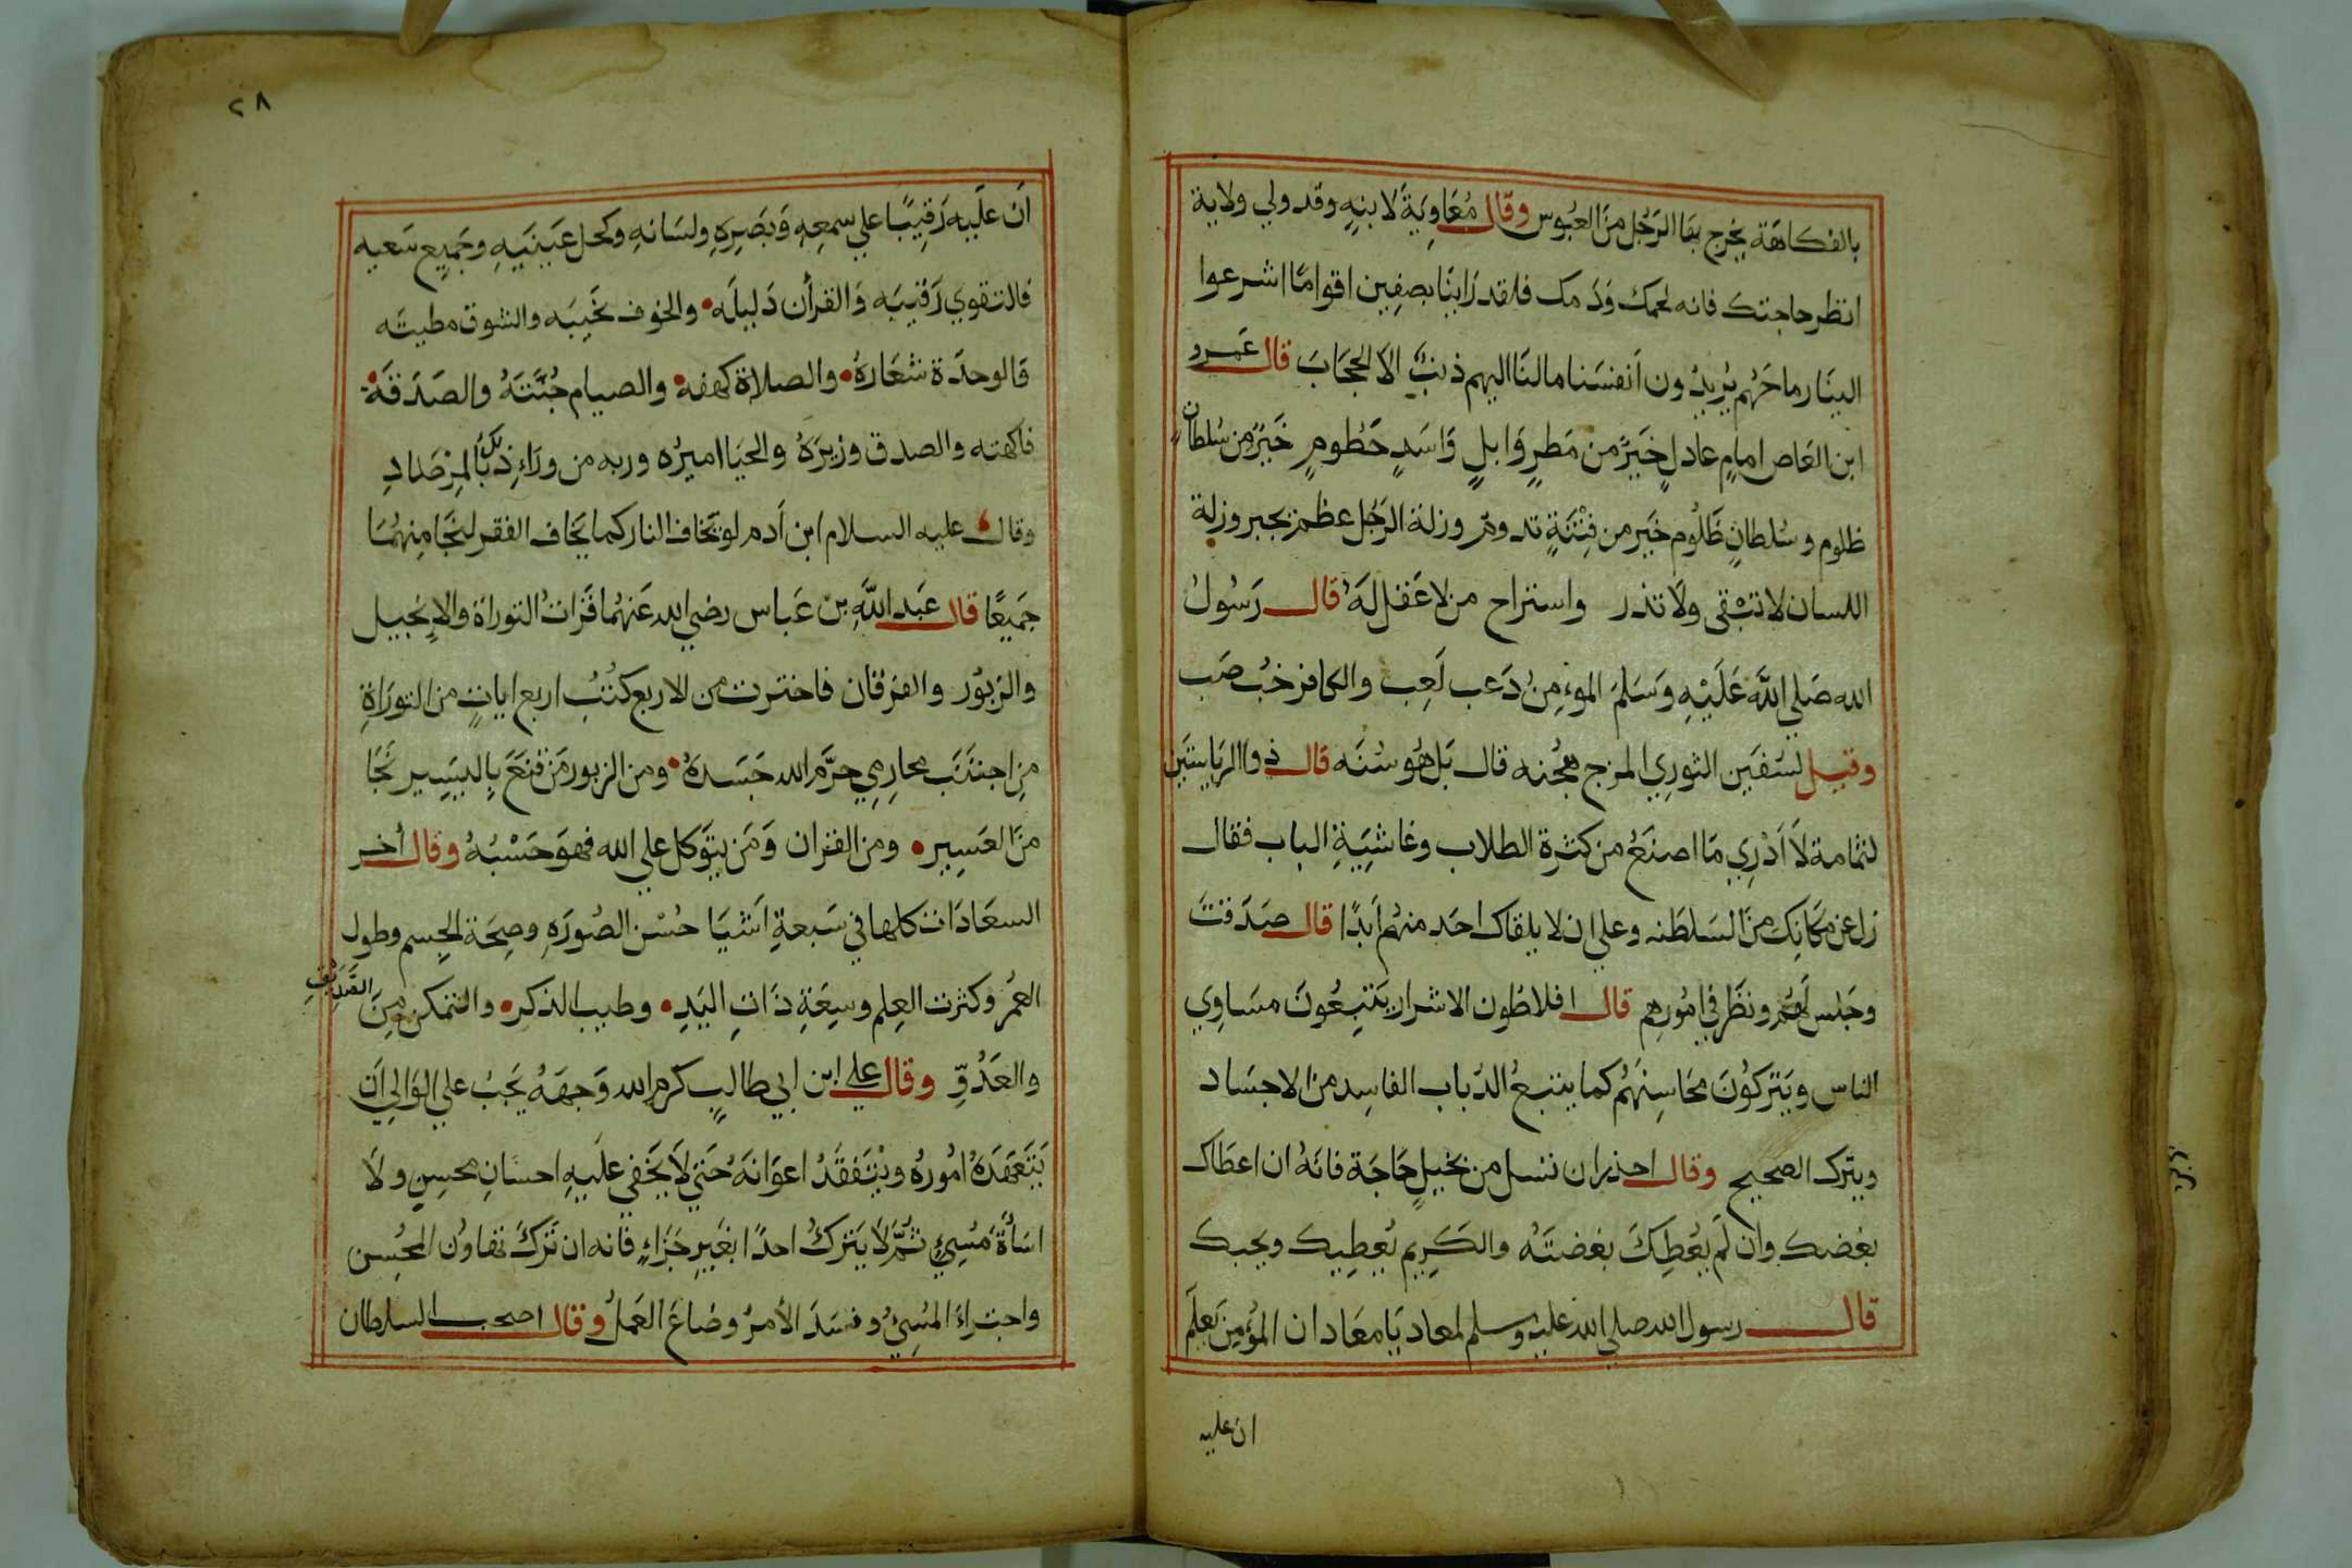 بالفكاهة يخرج بها الرَجُل منَ العبُوس وقال مُعَاوِيَةَ لابنِهِ وقد ولي ولاية
انظر حاجتك فانه لحمك وَدَمك فلقد رَاينَا بصِفِين اقوامًا اشرعوا
الينَا رماحَهُم يُريدُون اَنفسَنا مالنَا اليهم ذنبٌ الاَ الحجَابَ قال عَمرو
ابن العَاص امامٍ عادلٍ خَيرٌ من مَطرٍ وَابلٍ وَاسَدٍ حَطُومٍ خَيرٌ من سُلطانٍ
ظلوم وسُلطانٍ ظَلُوم خَير من فِتْنَةٍ تدومُ وزلة الرَجُل عظم يجبر وزلة
اللسان لا تبْقى ولَا تذر واستراح من لا عَقل لَهُ قال رَسُولُ
الله صَلي اللَّه عَلَيْهِ وَسَلمَ الموءمِنُ دَعب لَعِب والكافر خبُ ضَب
وقيل لسُفيَن الثورِي المزج هُجنه قال بَل هُو سُنَه قال ذوا الريَاستَين
لثمَامة لَا اَدْرِي مَا اصنَعُ من كثرة الطلاب وغاشيَةِ الباب فقال
زل عن مَكانِك منَ السَلطَنه وعلي ان لا يلقاك احَد منهُم اَبدًا قال صَدَقتَ
وجَلس لَهُم ونظَر في امُورهِم قال افلاطون الاشرار يَتبِعُونَ مسَاوِي
الناس ويَتركُونَ محَاسِنَهُم كما يتبعُ الدَباب الفاسِد من الاجسَاد
ويترك الصحيح وقال احذر ان تسل من بخيلٍ حَاجَة فانَهُ ان اعطَاك
بغضك وان لَم يُعْطِكَ بغضتَهُ والكَرِيم يُعطِيك ويحبك
قال رسول الله صلي الله عليه وسلم لمعاد يَا مَعَاد ان المؤمِنَ يَعلَم
ان عليه
٢٨
اَن علَيه رَقِيبًا علي سمعِهِ وَبَصَرِهِ ولسَانهِ وكحل عَينَيهِ وجَميع سَعيه
فالتقوي رَقيبَه وَالقراٰن دَليلَه والخوف نخَيبَه والشوق مطيتَه
فَالوحدَة شعَارهُ والصلاة كهفه والصيام جُنَّتَهُ والصَدَقَة
فاكهته والصدق وزيرَهُ والحيَا اميرُه وربه من ورَاءِ ذلك بالمِرْصَادِ
وقال عليه السلام ابن اَدم لو تخَاف النار كما يَخاف الفقر لنجَا مِنهُمَا
جَميعًا قال عَبَد اللَّهِ بن عَباس رضي الله عَنهُما قَرَاتُ التوراة والاِنجيل
والزبوُر والفرقان فاخترت من الاربع كُتُبُ اربع اياتٍ من التورَاةِ
مِن اجتنَب محارِمِي حرَّم الله جَسَدهُ ومن الزبور مَن قنعَ بِاليَسِير نجَا
منَ العَسِير ومن القران وَمَن يتَوكل علي الله فهوَ حَسْبُهُ وقال أخر
السعَادَات كلها في سَبعةِ اَشيَا حُسْن الصُورَهِ وصِحَة الجِسم وطول
العمُر وكثرت العِلم وسِعَةِ ذَاتِ اليَدِ وطيب الذكر والتمكن مِنَ الصَدِيقِ
والعَدُوِّ وقال علي ابن ابي طالبٍ كرم الله وَجهَهُ يجَبُ علي الوَالِي اَن
يَتَعَهَدَهُ امُورهُ ويْتَفقَدُ اعوَانهَ حَتي لَا يَخْفي علَيهِ احسَانِ محسِنٍ ولَا
اسَأَةَ مُسِيءٍ ثُمَّ لَا يَترُكُ احدًا بغَيرِ جَزَاءٍ فانه ان تَركَ تهَاوُن المحُسن
واجتراءَ المُسِيُ وفسَدَ الأمرُ وضَاعَ العَملُ وقال اصحب السلطان